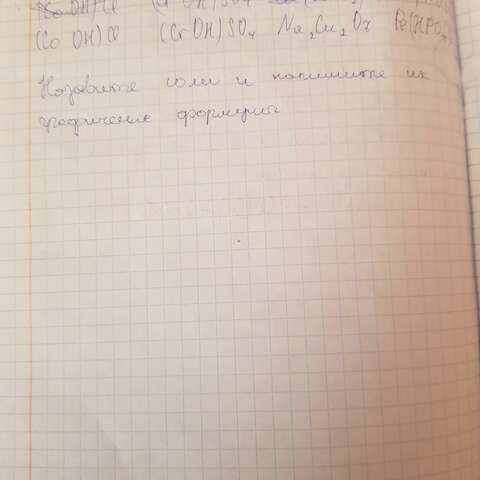 (CoOH)Cl (CrOH)SO₄ Na₂Cu₂O₇ Fe(HPO₄)
Назовите соли и напишите их
графические формулы